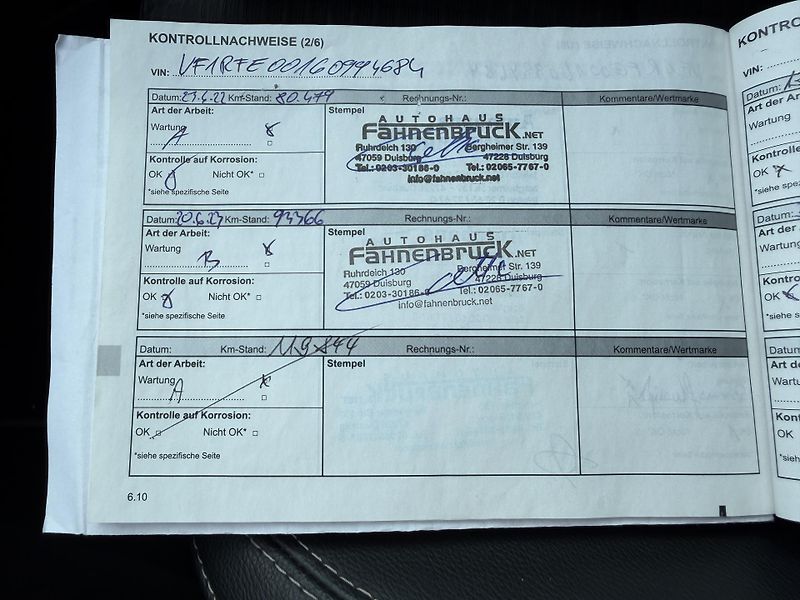 KONTROLLNACHWEISE (2/6)
VIN: VF1RFE00160994684
Datum: Km-Stand: 80.479 Rechnungs-Nr.: Kommentare/Wertmarke
Art der Arbeit: Stempel
Wartung
A
Kontrolle auf Korrosion:
OK Nicht OK*
*siehe spezifische Seite
AUTOHAUS
FAHNENBRUCK.NET
Ruhrdeich 130 Bergheimer Str. 139
47059 Duisburg 47228 Duisburg
Tel.: 0203-30186-0 Tel.: 02065-7767-0
info@fahnenbruck.net
Datum: 20.6.23 Km-Stand: 93366 Rechnungs-Nr.: Kommentare/Wertmarke
Art der Arbeit: Stempel
Wartung
B
Kontrolle auf Korrosion:
OK Nicht OK*
*siehe spezifische Seite
AUTOHAUS
FAHNENBRUCK.NET
Ruhrdeich 130 Bergheimer Str. 139
47059 Duisburg 47228 Duisburg
Tel.: 0203-30186-0 Tel.: 02065-7767-0
info@fahnenbruck.net
Datum: Km-Stand: 119844 Rechnungs-Nr.: Kommentare/Wertmarke
Art der Arbeit: Stempel
Wartung
A
Kontrolle auf Korrosion:
OK Nicht OK*
*siehe spezifische Seite
6.10
VIN:
Datum:
Art der Arb
Wartung
OK
Art der Arb
Wartung
OK
Datum:
Wartung
OK